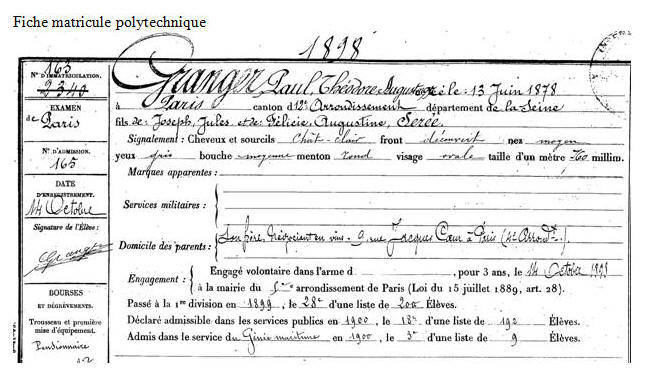 Fiche matricule polytechnique
1898
N° D'IMMATRICULATION.
163
2340
EXAMEN
de Paris
N° D'ADMISSION.
165
DATE
D'ENREGISTREMENT.
14 Octobre
Signature de l'Élève :
Granger
BOURSES
ET DÉGRÈVEMENTS.
Trousseau et première
mise d'équipement.
Pensionnaire
Granger Paul, Théodore, Auguste né le : 13 Juin 1878
à Paris canton d 12e Arrondissement département de la Seine
fils de : Joseph, Jules et de Félicie, Augustine, Serée
Signalement : Cheveux et sourcils chât-clair front découvert nez moyen
yeux gris bouche moyenne menton rond visage ovale taille d'un mètre 760 millim.
Marques apparentes :
Services militaires :
Domicile des parents : Son frère, Négociant en vins - 9, rue Jacques Cœur à Paris (4e Arrondt.)
Engagement : Engagé volontaire dans l'arme d , pour 3 ans, le 14 Octobre 1898
à la mairie du 5me arrondissement de Paris (Loi du 15 juillet 1889, art. 28).
Passé à la 1re division en 1899, le 28e d'une liste de 200 Élèves.
Déclaré admissible dans les services publics en 1900, le 18e d'une liste de 192 Élèves.
Admis dans le service du Génie maritime en 1900, le 3e d'une liste de 9 Élèves.